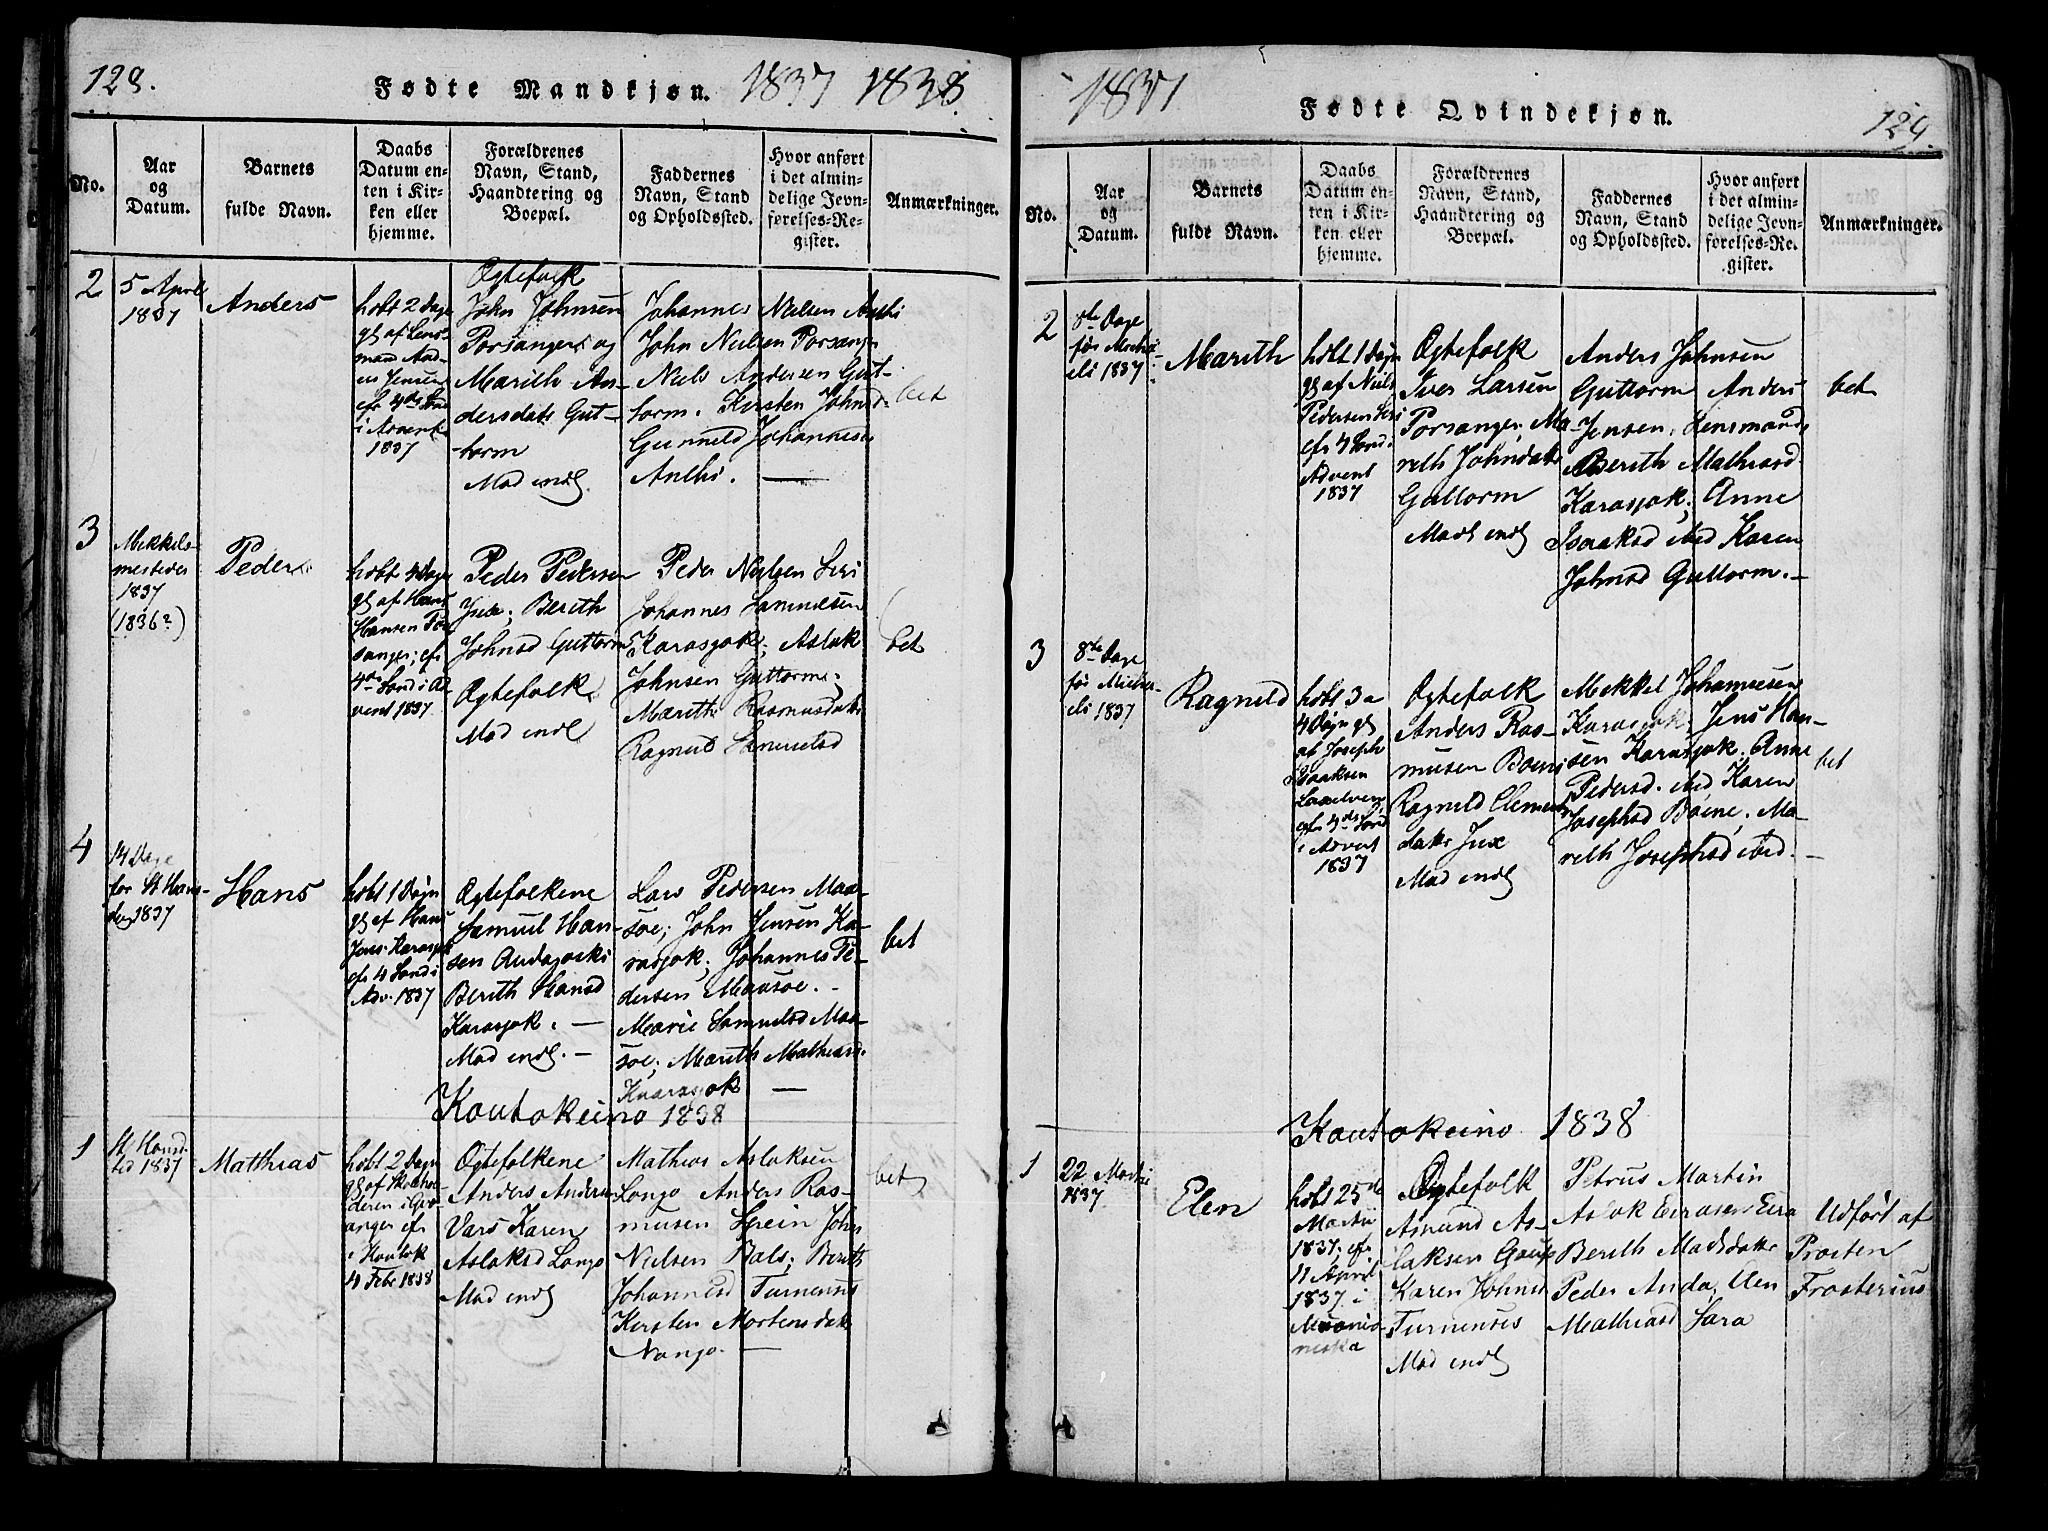 128.
Fødte Mandkjøn. 1837 1838
No.
Aar
og
Datum.
Barnets
fulde Navn.
Daabs
Datum en-
ten i Kir-
ken eller
hjemme.
Forældrenes
Navn, Stand,
Haandtering og
Boepæl.
Faddernes
Navn, Stand
og Opholdssted.
Hvor anført
i det almin-
delige Jevn-
førelses-Re-
gister.
Anmærkninger.
2
5 April
1837
Anders
hdbt 2 Dage
gl af Lens-
man And-
ers Jensen
efr 4de Sønd
i Advent
1837
Ægtefolk
John Johnsen
Porsanger og
Marith An-
dersdatr Gut-
torm
Mod endl
Johannes Nielsen Anthi
John Nielsen Porsanger
Niels Andersen Gut-
torm. Kirsten Johnsd
Gunneld Johannesd
Anthi. —
bet
3
Mikkels-
mestider
1837
(1836?)
Peder
hdbt 4 Dage
gl af Hans
Hansen Por
sanger; efr
4de Sønd i Ad
vent 1837
Peder Pedersen
Jux; Berith
Johnsd Guttorm
Ægtefolk
Mod endl
Peder Nielsen Siri
Johannes Samuelsen
Karasjok; Aslak
Johnsen Guttorm;
Marith Rasmusdatr
Ragnild Samuelsd
bet
4
14 Dage
før St Hans-
dag 1837
Hans
hdbt 1 Døgn
gl af Hans
Jens. Karasjok
efr 4 Sønd i
Adv. 1837
Ægtefolkene
Samuel Han-
sen Audajoski
Berith Hansd
Karasjok. —
Mod endl. —
Lars Pedersen Maa-
søe; John Jensen Ka-
rasjok; Johannes Pe-
dersen Maasøe. -
Marie Samuelsd Maa-
søe; Marith Mathiasd.
Karasjok —
bet
Koutokeino 1838
1
St Hans-
tid 1837
Matthias
hdbt 2 Dagn
gl af
deren i
anger efr
i Koutok
4 Febr 1838
Ægtefolkene
Anders Anders
Vars Karen
Aslaksd Longo
Mod endl
Mathias Aslaksen
Longo Anders Ras-
musen Spein John
Nielsen Bals; Berith
Johannesd Turnensis
Kirsten Mortensdatr
Nango. —
bet
1837
Fødte Qvindekjøn.
129.
No.
Aar
og
Datum.
Barnets
fulde Navn.
Daabs
Datum en-
ten i Kir-
ken eller
hjemme.
Forældrenes
Navn, Stand,
Haandtering og
Boepæl.
Faddernes
Navn, Stand
og Opholdssted.
Hvor anført
i det almin-
delige Jevn-
førelses-Re-
gister.
Anmærkninger.
2
8te Dage
før Micha-
eli 1837
Marith
hdbt 1 Døgn
gl af Niels
Pedersen Siri
efr 4 Sønd i
Advent
1837
Ægtefolk
Iver Larsen
Porsanger, Ma-
reth Johnsdatr
Guttorm
Mod endl
Anders Johnsen
Guttorm Anders
Jensen, Lensmand,
Berith Mathiasd
Karasjok; Anne
Isaaksd ibid Karen
Johnsd Guttorm. -
bet
3
8te Dage
før Micha-
eli 1837
Ragnild
hdbt 3 a
4 Døgn gl
af Joseph
Isaaksen
Laxelven
efr 4de Sønd
i Advent
1837
Ægtefolk
Anders Ras-
musen Boeni
Ragnild Clements
datr Jux
Mod endl
Mikkel Johannesen
Karasjok. Jens Han-
sen Karasjok. Anne
Pedersd. ibid Karen
Josephsd Boine, Ma-
reth Josephsd ibid. —
bet
Koutokeino 1838
1
22 Martii
1837
Elen
hdbt 25de
Martii
1837; efr
11 April
1837 i
Muonio-
niska
Ægtefolk
Asmund As-
laksen Gaup
Karen Johnsd
Turnensis
Mod endl
Petrus Martin
Aslak Eirasen Eira
Berith Madsdatr
Peder Anda, Elen
Mathiasd Sara
Udført af
Prosten
Frosterius